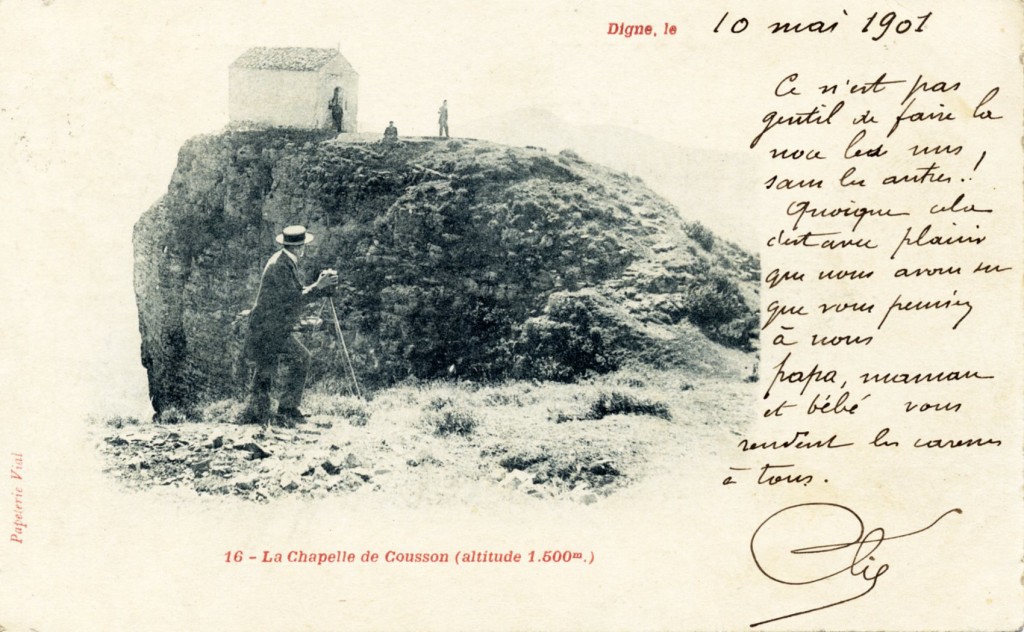 Digne, le 10 mai 1901
Ce n'est pas
gentil de faire la
noce les uns,
sans les autres.!
Quoique cela
c'est avec plaisir
que nous avons su
que vous pensiez
à nous
papa, maman
et bébé vous
rendent les caresses
à tous.
Elie
Papeterie Vial
16 - La Chapelle de Cousson (altitude 1.500m.)